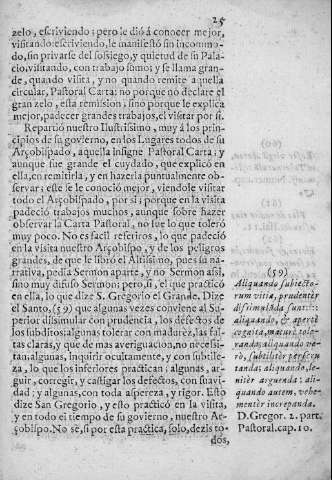 25
zelo, escriviendo; pero le dió á conocer mejor,
visitando: escriviendo, le manifestó sin incommo-
do, sin privarse del sossiego, y quietud de su Pala-
cio, visitando, con trabajo sumo; y se llama gran-
de, quando visita, y no quando remite aquella
circular, Pastoral Carta: no porque no declare el
gran zelo, esta remission; sino porque le explica
mejor, padecer grandes trabajos, el visitar por si.
Repartió nuestro Ilustrissimo, muy á los prin-
cipios de su govierno, en los Lugares todos de su
Arçobispado, aquella insigne Pastoral Carta: y
aunque fue grande el cuydado, que explicó en
ella, en remitirla, y en hazerla puntualmente ob-
servar: este se le conoció mejor, viendole visitar
todo el Arçobispado, por si; porque en la visita
padeció trabajos muchos, aunque sobre hazer
observar la Carta Pastoral, no fue lo que toleró
muy poco. No es facil referiros, lo que padeció
en la visita nuestro Arçobispo, y de los peligros
grandes, de que le libró el Altissimo, pues su na-
rrativa, pedia Sermon aparte, y no Sermon assi,
sino muy difuso Sermon; pero, si, el que practicó
en ella, lo que dize S. Gregorio el Grande. Dize
el Santo, (59) que algunas vezes conviene al Su-
perior dissimular con prudencia, los defectos de
los subditos; algunas tolerar con madurez, las fal-
tas claras, y que de mas averiguacion, no necessi-
tan: algunas, inquirir ocultamente, y con subtile-
za, lo que los inferiores practican: algunas, ar-
guir, corregir, y castigar los defectos, con suavi-
dad: y algunas, con toda aspereza, y rigor. Esto
dize San Gregorio, y esto practicó en la visita,
y en todo el tiempo de su govierno, nuestro Ar-
çobispo. No sè, si por esta practica, solo, dezis to-
dos,
(59)
Aliquando subiecto-
rum vitia, prudentèr
dissimulanda sunt::
aliquando, & apertè
cognita, maturè tole-
randa: aliquando ve-
rò, subtilitèr perscru-
tanda: aliquando, le-
nitèr arguenda: ali-
quando autem, vehe-
mentèr increpanda.
D. Gregor. 2. part.
Pastoral. cap. 10.